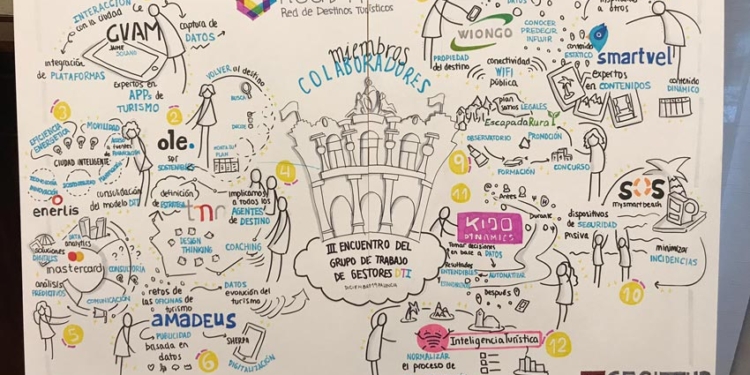 Red de Destinos Turísticos
miembros
COLABORADORES
INTERACCIÓN
con la ciudad
GVAM
captura de
DATOS
integración
de PLATAFORMAS
expertos en
APPs de
TURISMO
VOLVER al destino
3
2
EFICIENCIA
ENERGÉTICA
MOVILIDAD
CIUDAD INTELIGENTE
ole.
ser
SOSTENIBLE
enerlis
consolidación
del modelo DTI
definición
de ESTRATEGIA
tnn
implicamos
a todos los
AGENTES
de DESTINO
4
DESIGN
THINKING
COACHING
DATA
analytics
soluciones
DIGITALES
mastercard
CONSULTORÍA
análisis
PREDICTIVOS
COMUNICACIÓN
5
retos de
las OFICINAS de
turismo
DATOS
evolución del
turismo
AMADEUS
PUBLICIDAD
basada en
datos
SHERPA
DIGITALIZACIÓN
6
III ENCUENTRO DEL
GRUPO DE TRABAJO
DE GESTORES DTI
WIONGO
CONOCER
PREDECIR
INFLUIR
PROPIEDAD
del destino
conectividad
WIFI
pública
a otros
contenido
ESTÁTICO
smartvel
expertos
en CONTENIDOS
contenido
DINÁMICO
plan
sanos LEGALES
EscapadaRural
OBSERVATORIO
PROMOCIÓN
FORMACIÓN
CONCURSO
9
11
Antes
Durante
KIDO
DYNAMICS
Tomar decisiones
en base a DATOS
Resultados
ENTENDIBLES
AUTOMATIZAR
después
SOS
mysmartbeach
dispositivos
de SEGURIDAD
pasiva
minimizar
INCIDENCIAS
10
Inteligencia turística
12
NORMALIZAR
el proceso de